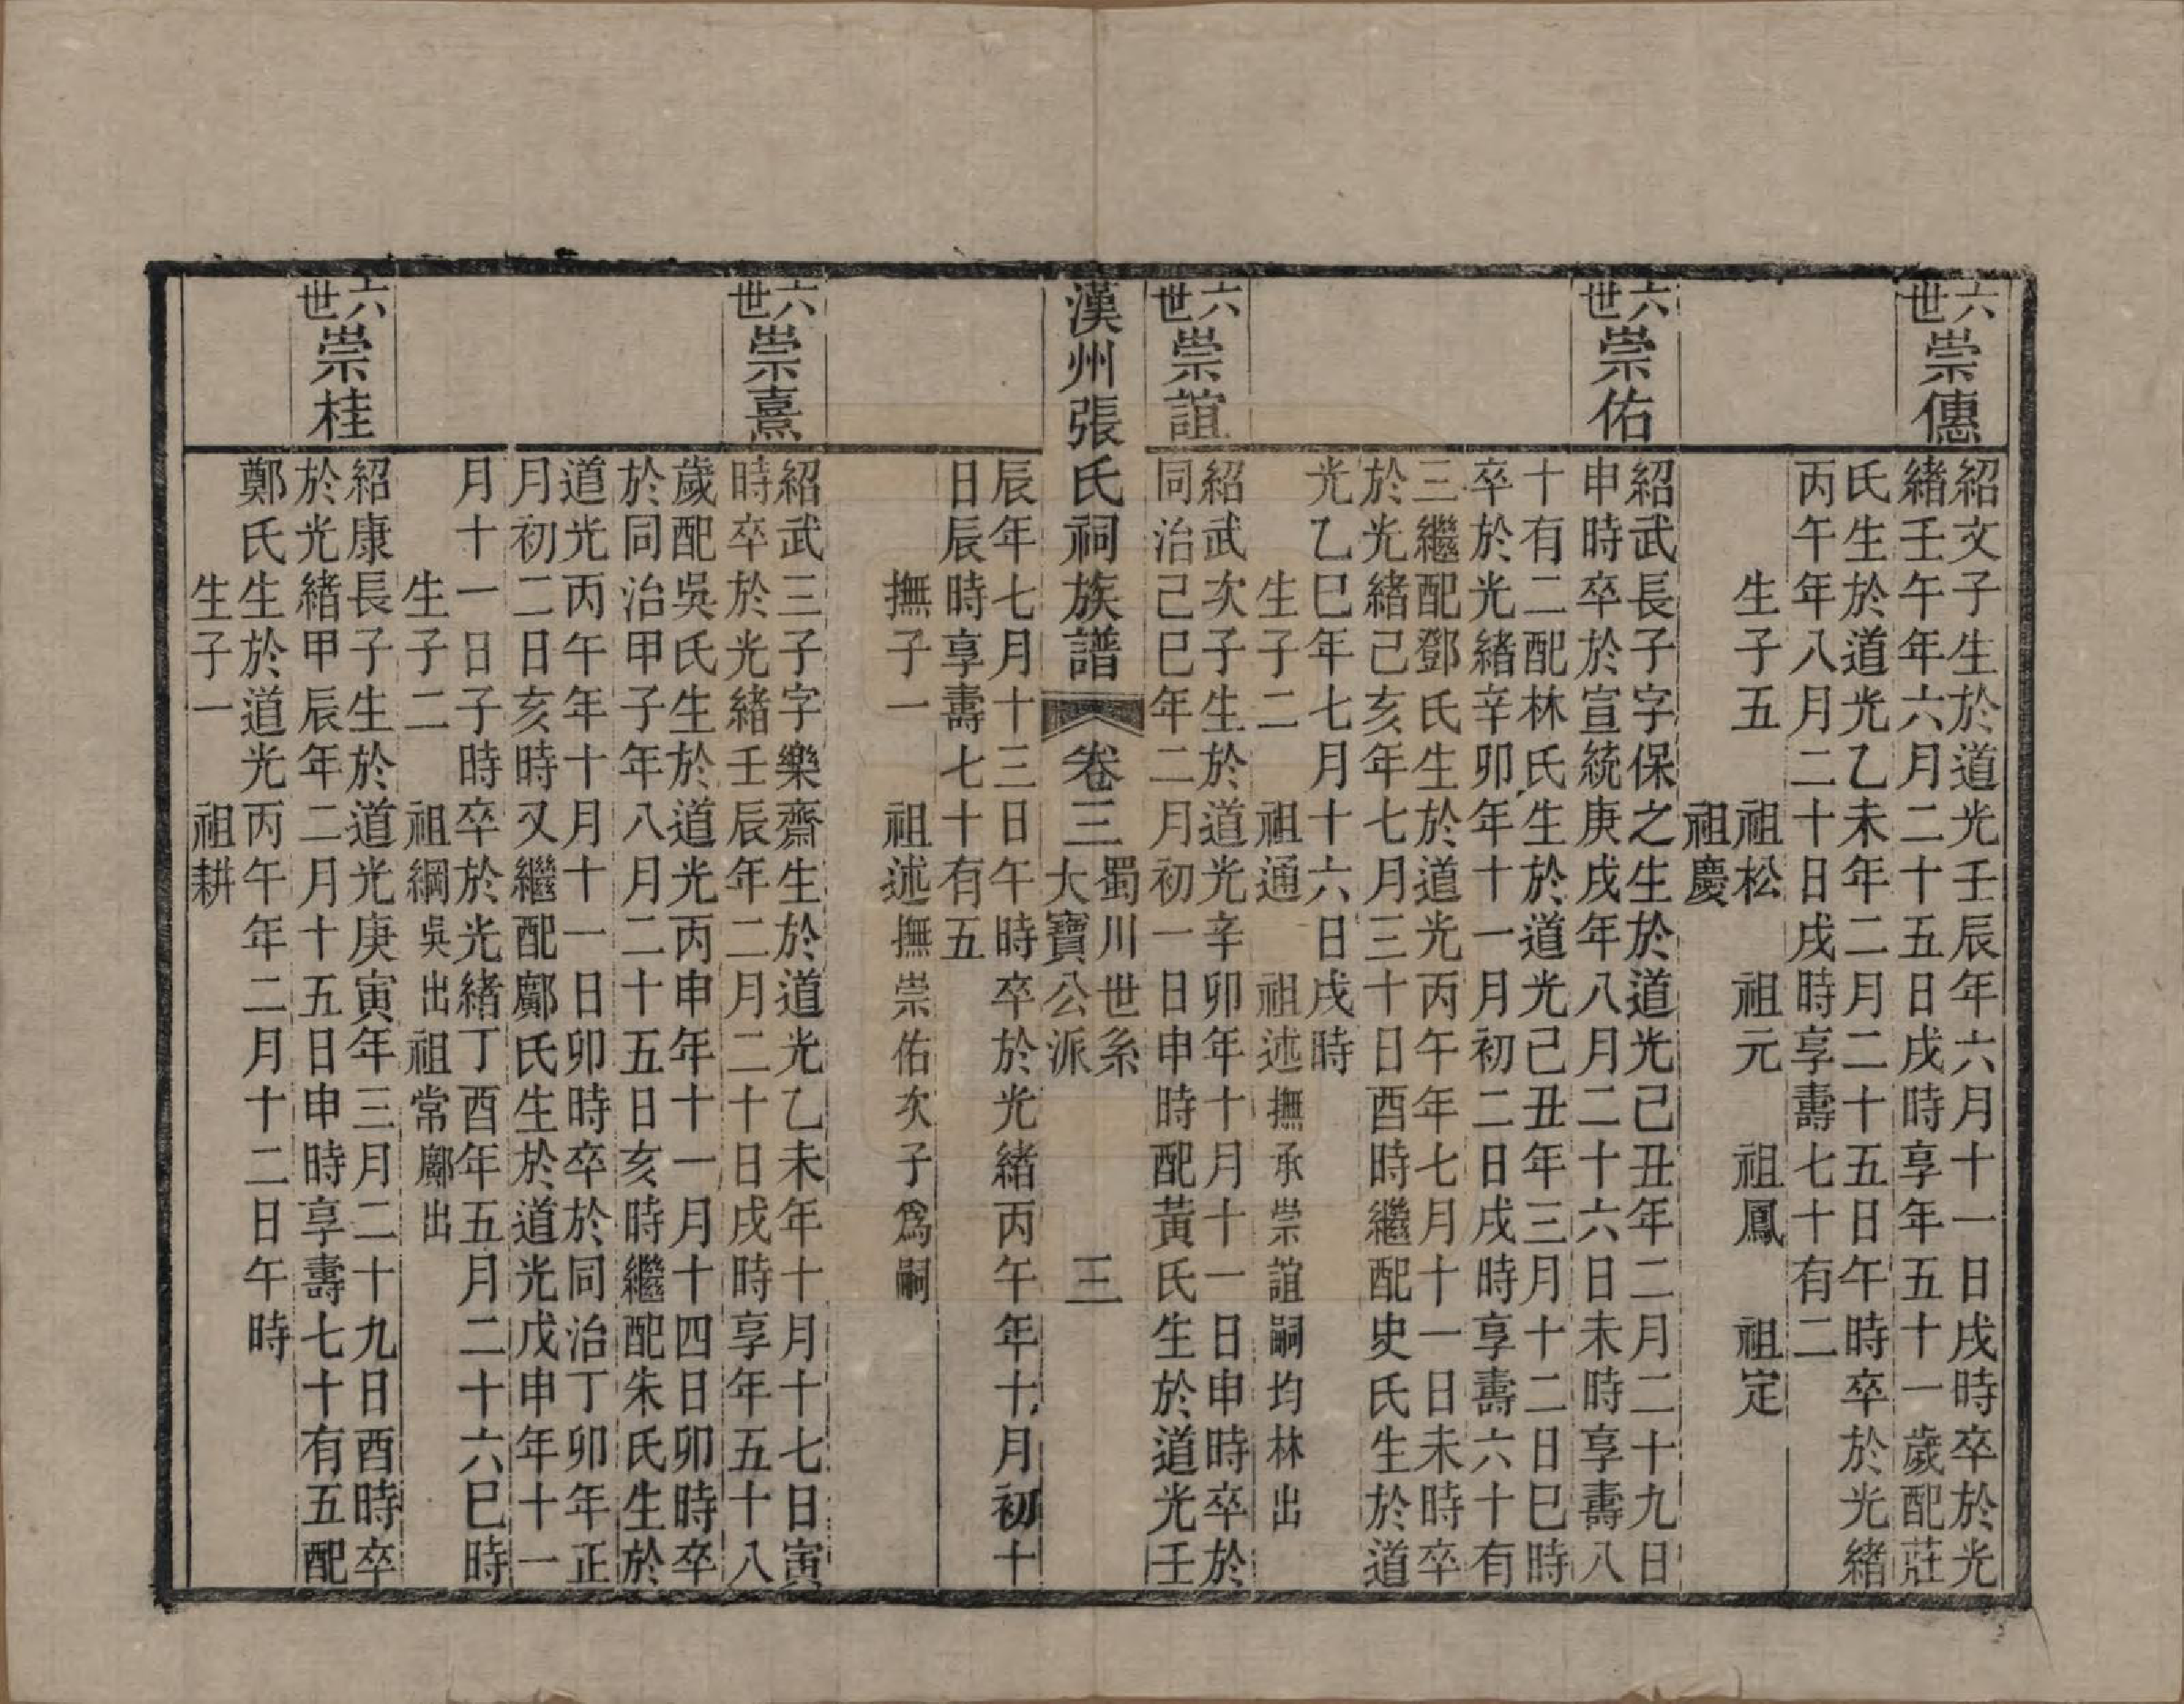 六世崇僡
紹文子生於道光壬辰年六月十一日戌時卒於光
緒壬午年六月二十五日戌時享年五十一歲配莊
氏生於道光乙未年二月二十五日午時卒於光緒
丙午年八月二十日戌時享壽七十有二
生子五　祖松　祖元　祖鳳　祖定
祖慶
六世崇佑
紹武長子字保之生於道光己丑年二月二十九日
申時卒於宣統庚戌年八月二十六日未時享壽八
十有二配林氏生於道光己丑年三月十二日巳時
卒於光緒辛卯年十一月初二日戌時享壽六十有
三繼配鄧氏生於道光丙午年七月十一日未時卒
於光緒己亥年七月三十日酉時繼配史氏生於道
光乙巳年七月十六日戌時
生子二　祖通　祖述撫承崇誼嗣均林出
六世崇誼
紹武次子生於道光辛卯年十月十一日申時卒於
同治己巳年二月初一日申時配黃氏生於道光壬
漢州張氏祠族譜　卷三　蜀川世系　大寶公派　三
辰年七月十三日午時卒於光緒丙午年十月初十
日辰時享壽七十有五
撫子一　祖述撫崇佑次子爲嗣
六世崇熹
紹武三子字樂齋生於道光乙未年十月十七日寅
時卒於光緒壬辰年二月二十日戌時享年五十八
歲配吳氏生於道光丙申年十一月十四日卯時卒
於同治甲子年八月二十五日亥時繼配朱氏生於
道光丙午年十月十一日卯時卒於同治丁卯年正
月初二日亥時又繼配鄺氏生於道光戊申年十一
月十一日子時卒於光緒丁酉年五月二十六巳時
生子二　祖綱吳出　祖常鄺出
六世崇桂
紹康長子生於道光庚寅年三月二十九日酉時卒
於光緒甲辰年二月十五日申時享壽七十有五配
鄭氏生於道光丙午年二月十二日午時
生子一　祖耕